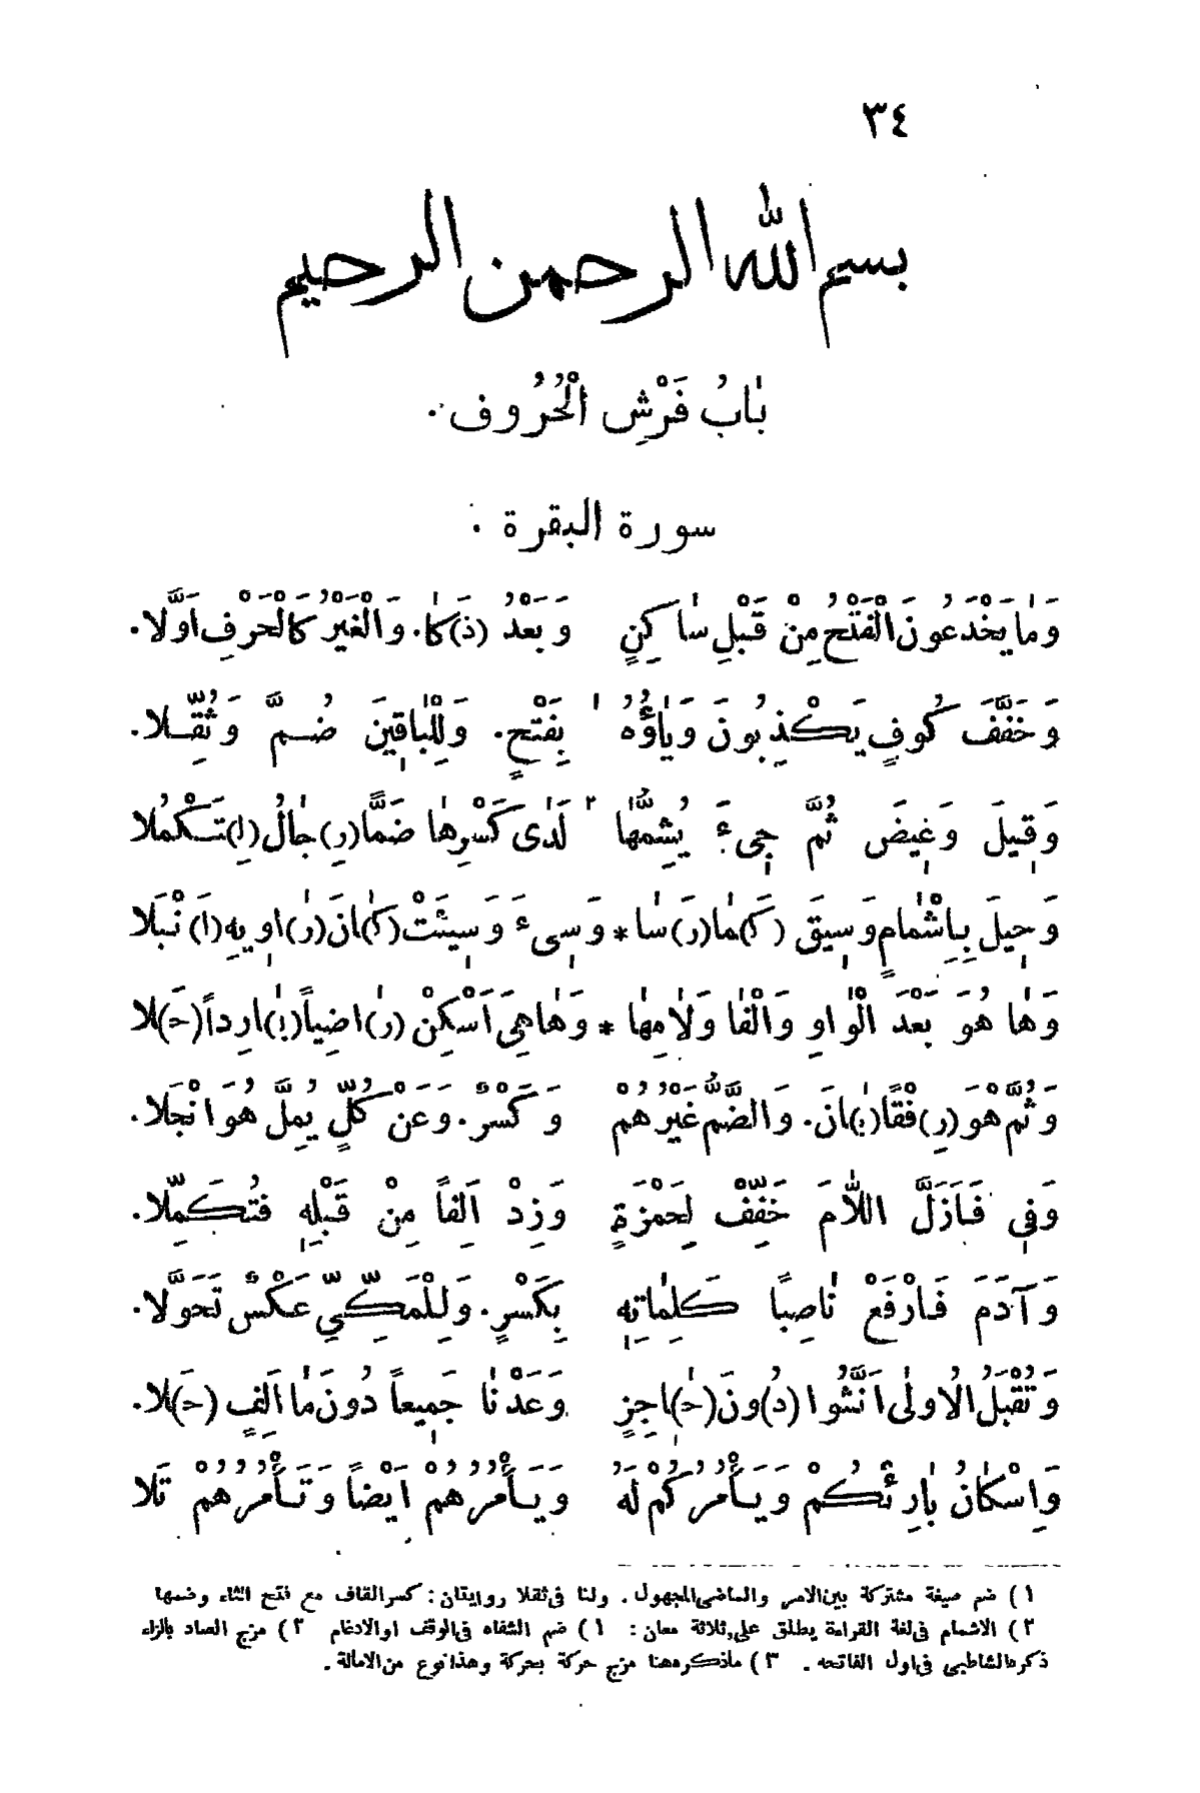 ٣٤
بسم الله الرحمن الرحيم
بَابُ فَرْشِ الْحُرُوفِ.
سورة البقرة .
وَمَا يَخْدَعُونَ الْفَتْحُ مِنْ قَبْلِ سَاكِنٍ وَبَعْدُ (ذَ)كَا. وَالْغَيْرُ كَالْحَرْفِ اَوَّلَا.
وَخَفَّفَ كُوفٍ يَكْذِبُونَ وَيَاؤُهُ ١ بِفَتْحٍ. وَلِلْبَاقِينَ ضُمَّ وَثُقِّلَا.
وَقِيلَ وَغِيضَ ثُمَّ جِىءَ يُشِمُّهَا ٢ لَدَى كَسْرِهَا ضَمًّا (رِ)جَالُ (لِ)تَكْمُلَا
وَحِيلَ بِاِشْمَامٍ وَسِيقَ (كَ)مَا (رَ)سَا * وَسِىءَ وَسِيئَتْ (كَ)انَ (رَ)اوِيهِ (اَ)نْبَلَا
وَهَا هُوَ بَعْدَ الْوَاوِ وَالْفَا وَلَامِهَا * وَهَا هِىَ اَسْكِنْ (رَ)اضِياً (بَ)ارِداً (حَ)لَا
وَثُمَّ هْوَ (رِ)فْقًا (بَ)انَ. وَالضَّمُّ غَيْرُهُمْ وَكَسْرٌ. وَعَنْ كُلٍّ يُمِلَّ هُوَ انْجَلَا.
وَفِى فَاَزَلَّ اللَّامَ خَفِّفْ لِحَمْزَةٍ وَزِدْ اَلِفاً مِنْ قَبْلِهِ فَتُكَمِّلَا.
وَآدَمَ فَارْفَعْ نَاصِبًا كَلِمَاتِهِ بِكَسْرٍ. وَلِلْمَكِّىِّ عَكْسٌ تَحَوَّلَا.
وَتُقْبَلُ الْاُولَى اَنَّثُوا (دُ)ونَ (حَ)اجِزٍ وَعَدْنَا جَمِيعاً دُونَ مَا اَلِفٍ (حَ)لَا.
وَاِسْكَانُ بَارِئْكُمْ وَيَأْمُرُكُمْ لَهُ وَيَأْمُرُهُمْ اَيْضاً وَتَأْمُرُهُمْ تَلَا
١) ضم صيغة مشتركة بين الامر والماضى المجهول. ولنا فى ثقلا روايتان: كسر القاف مع فتح الثاء وضمها
٢) الاشمام فى لغة القراءة يطلق على ثلاثة معان: ١) ضم الشفاه فى الوقف او الادغام ٢) مزج الصاد بالزاء
ذكره الشاطبى فى اول الفاتحه. ٣) ماذكره هنا مزج حركة بحركة وهذا نوع من الامالة.